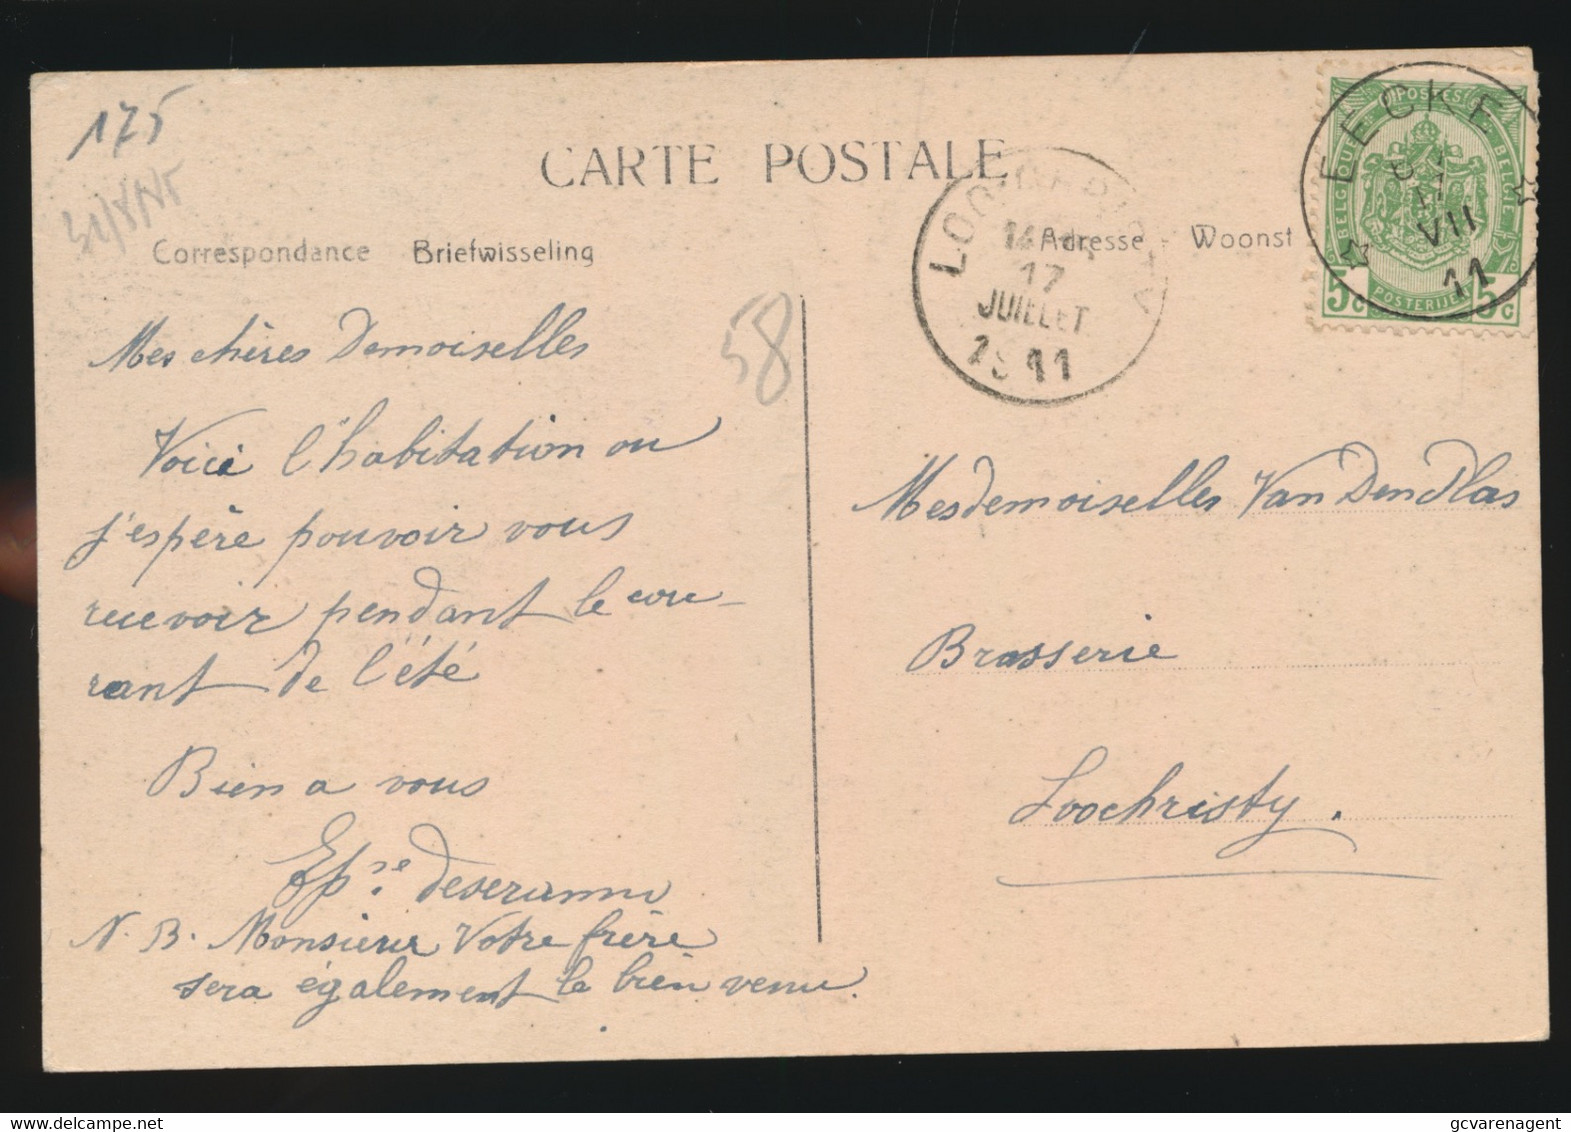 175
CARTE POSTALE
Correspondance Briefwisseling
Adresse - Woonst
EECKE
17
VII
11
POSTES
BELGIQUE
BELGIE
POSTERIJEN
5c 5c
17
JUILLET
1911
58
Mes chères Demoiselles
Voici l'habitation ou
j'espère pouvoir vous
recevoir pendant le cou-
rant de l'été
Bien a vous
N. B. Monsieur Votre frère
sera également le bien venu.
Mesdemoiselles Van Den Plas
Brasserie
Loochristy.
gcvarenagent